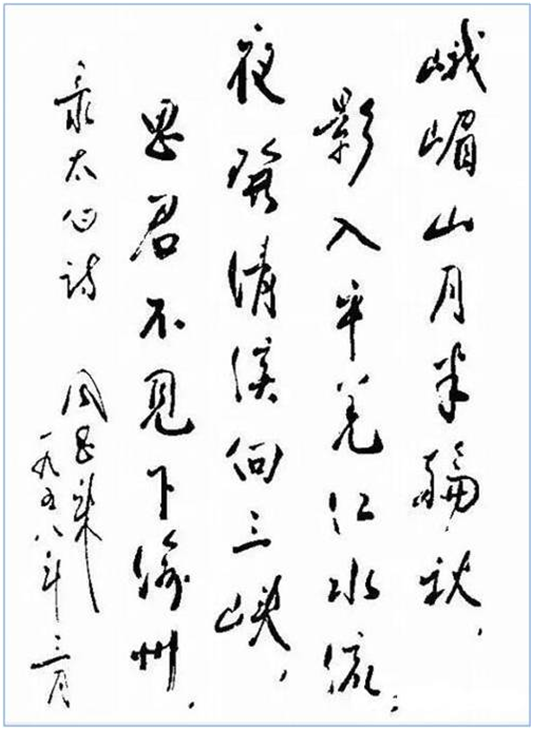 峨嵋山月半輪秋，
影入平羌江水流；
夜发清溪向三峡，
思君不見下渝州．
录太白诗
周恩来
一九五八年三月